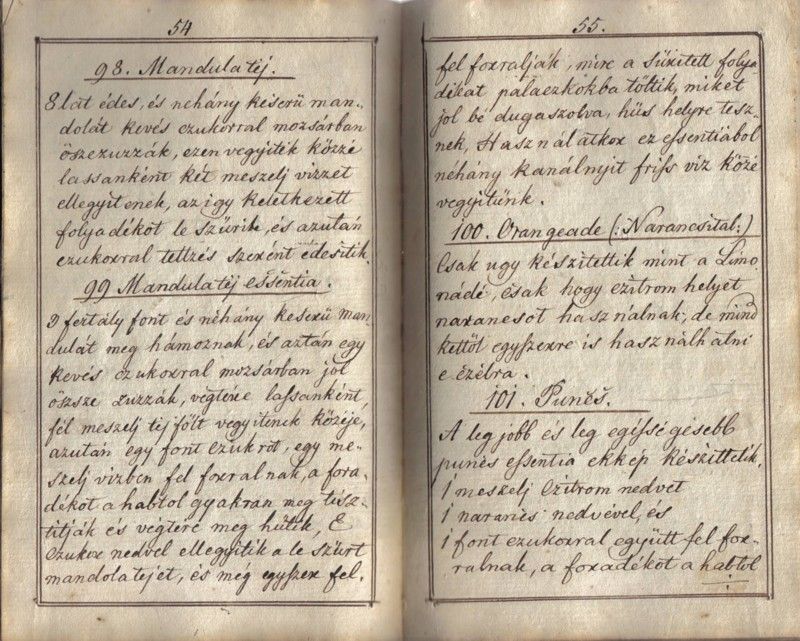 54
98. Mandulatéj.
8 lat édes, és nehány keserü man-
dolát kevés czukorral mozsárban
öszezuzzák, ezen vegyiték közzé
lassanként két meszelj vizzet
ellegyitenek, az igy keletkezett
folyadékot le szürik, és azután
czukorral tettzés szerént édesitik.
99 Mandulatéj essentia.
fertály font és néhány keserü man-
dulát meg hámoznak, és aztán egy
kevés czukorral mozsárban jól
öszsze zuzzák, végtére lassanként,
fél meszelj tej fölt vegyitenek közéje,
azután egy font czukrot, egy me-
szelj vizben fel forralnak, a fora-
dékot a habtol gyakran meg tisz-
titják és végtére meg hütik, E
czukor nedvel ellegyitik a le szürt
mandolatejet, és még egyszer fel.
55.
fel forralják, mire a süritett folya-
dékat palaczkokba töltik, miket
jol bé dugaszolva, hüs helyre tesz-
nek, Használatkor ez essentiából
néhány kanálnyit friss viz közé
vegyitünk.
100. Orangeade (: Narancsital :)
Csak ugy készitettik mint a Limo
nádé, csak hogy czitrom helyet
narancsot használnak, de mind
kettöt egyszerre is használhatni
e czélra.
101. Puncs.
A leg jobb és leg egisségésebb
puncs essentia ekkép készittetik,
1 meszelj czitrom nedvet
1 narancs nedvével, és
1 font czukorral együtt fel for-
ralnak, a foradékot a habtol